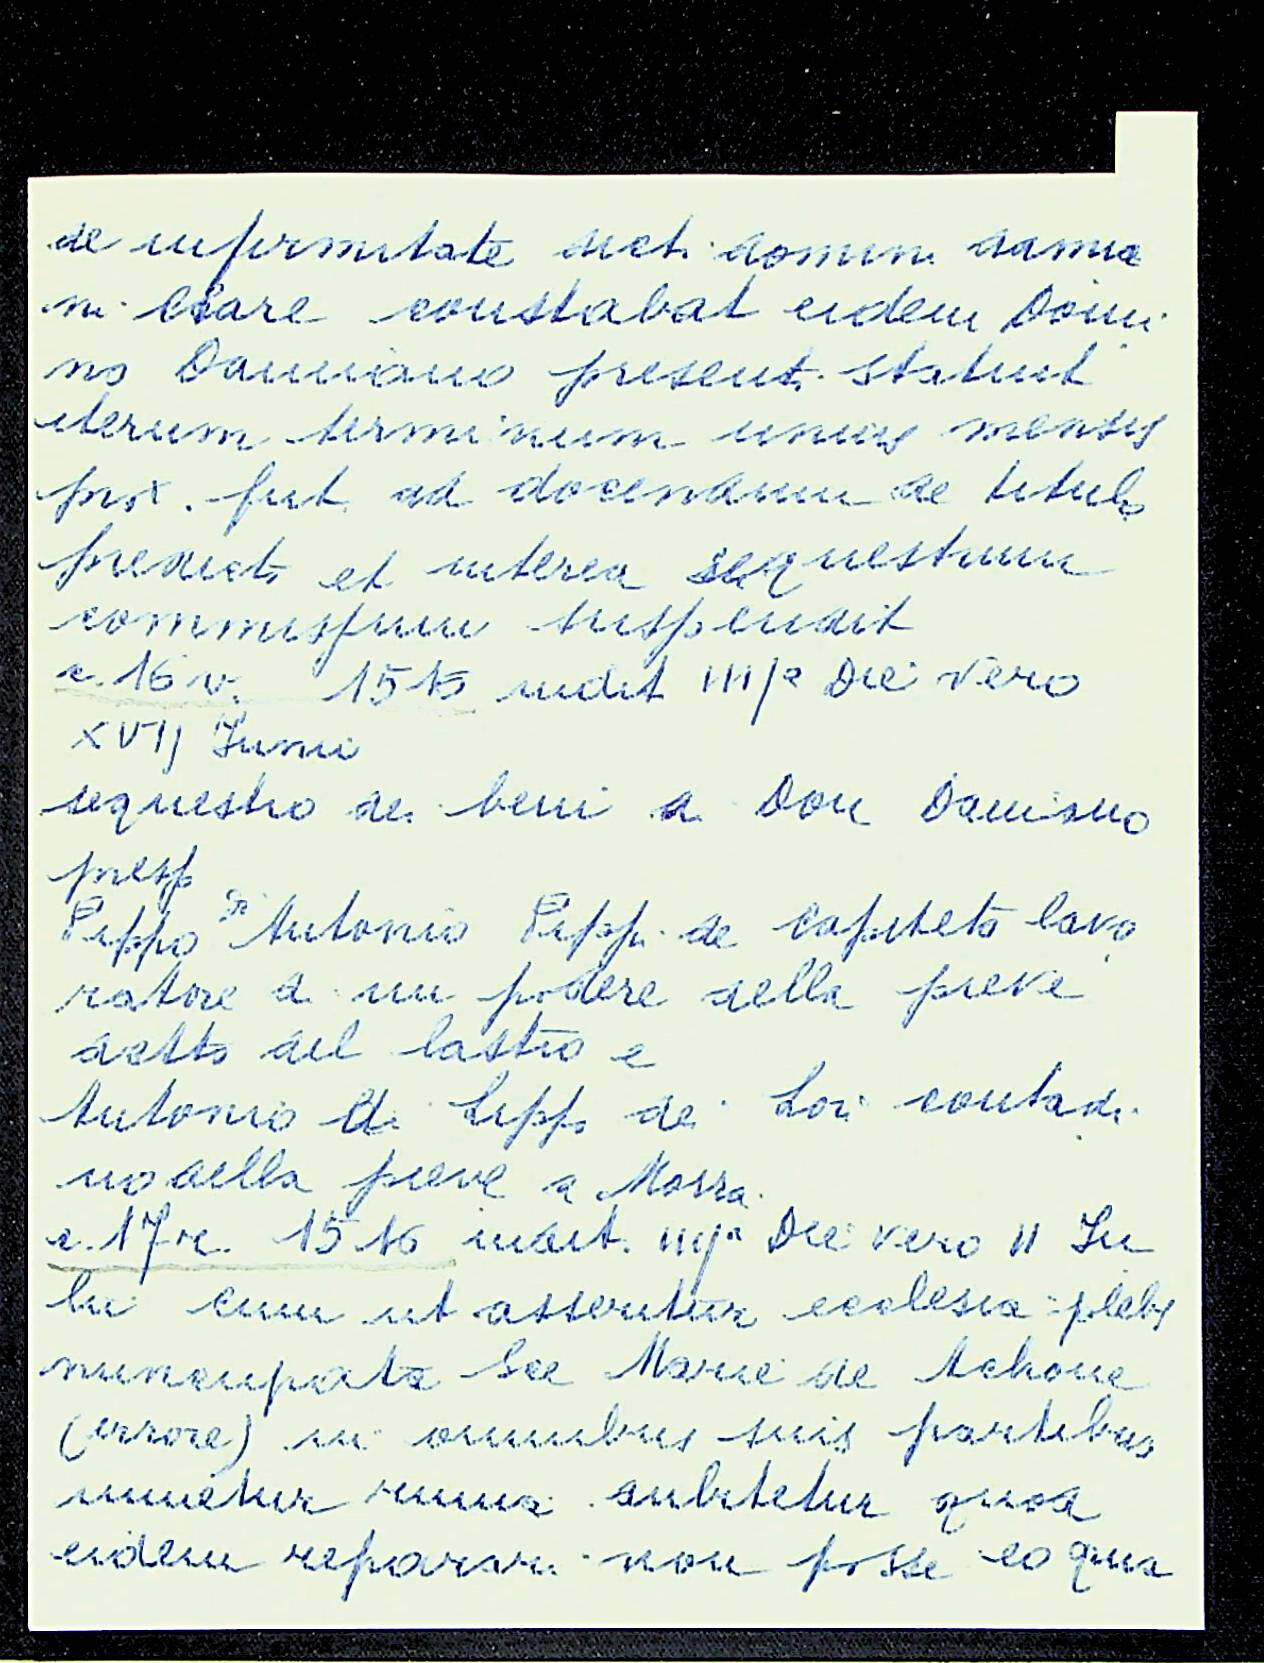 de infirmitate dicti domini Damia
ni clare constabat eidem Domi
no Damiano presenti statuit
iterum terminum unius mensis
prox. fut. ad docendum de titulo
predicto et interea sequestrum
commissum suspendit
c. 16 v. 1516 indit IIIJa Die vero
XVIJ Junii
sequestro dei beni a Don Damiano
presso
Pippo di Antonio Pippi de Capiteto lavo
ratore di un podere della pieve
detto del lastro e
Antonio di Lippo de Lori contadi
no della pieve a Morra
c. 17 r. 1516 indit. IIIJa Die vero II Ju
lii cum ut asseritur ecclesia plebs
nuncupata Sce Marie de Achone
(errore) in omnibus suis partibus
minetur ruina dubitetur quod
eidem reparari non posse eo quia